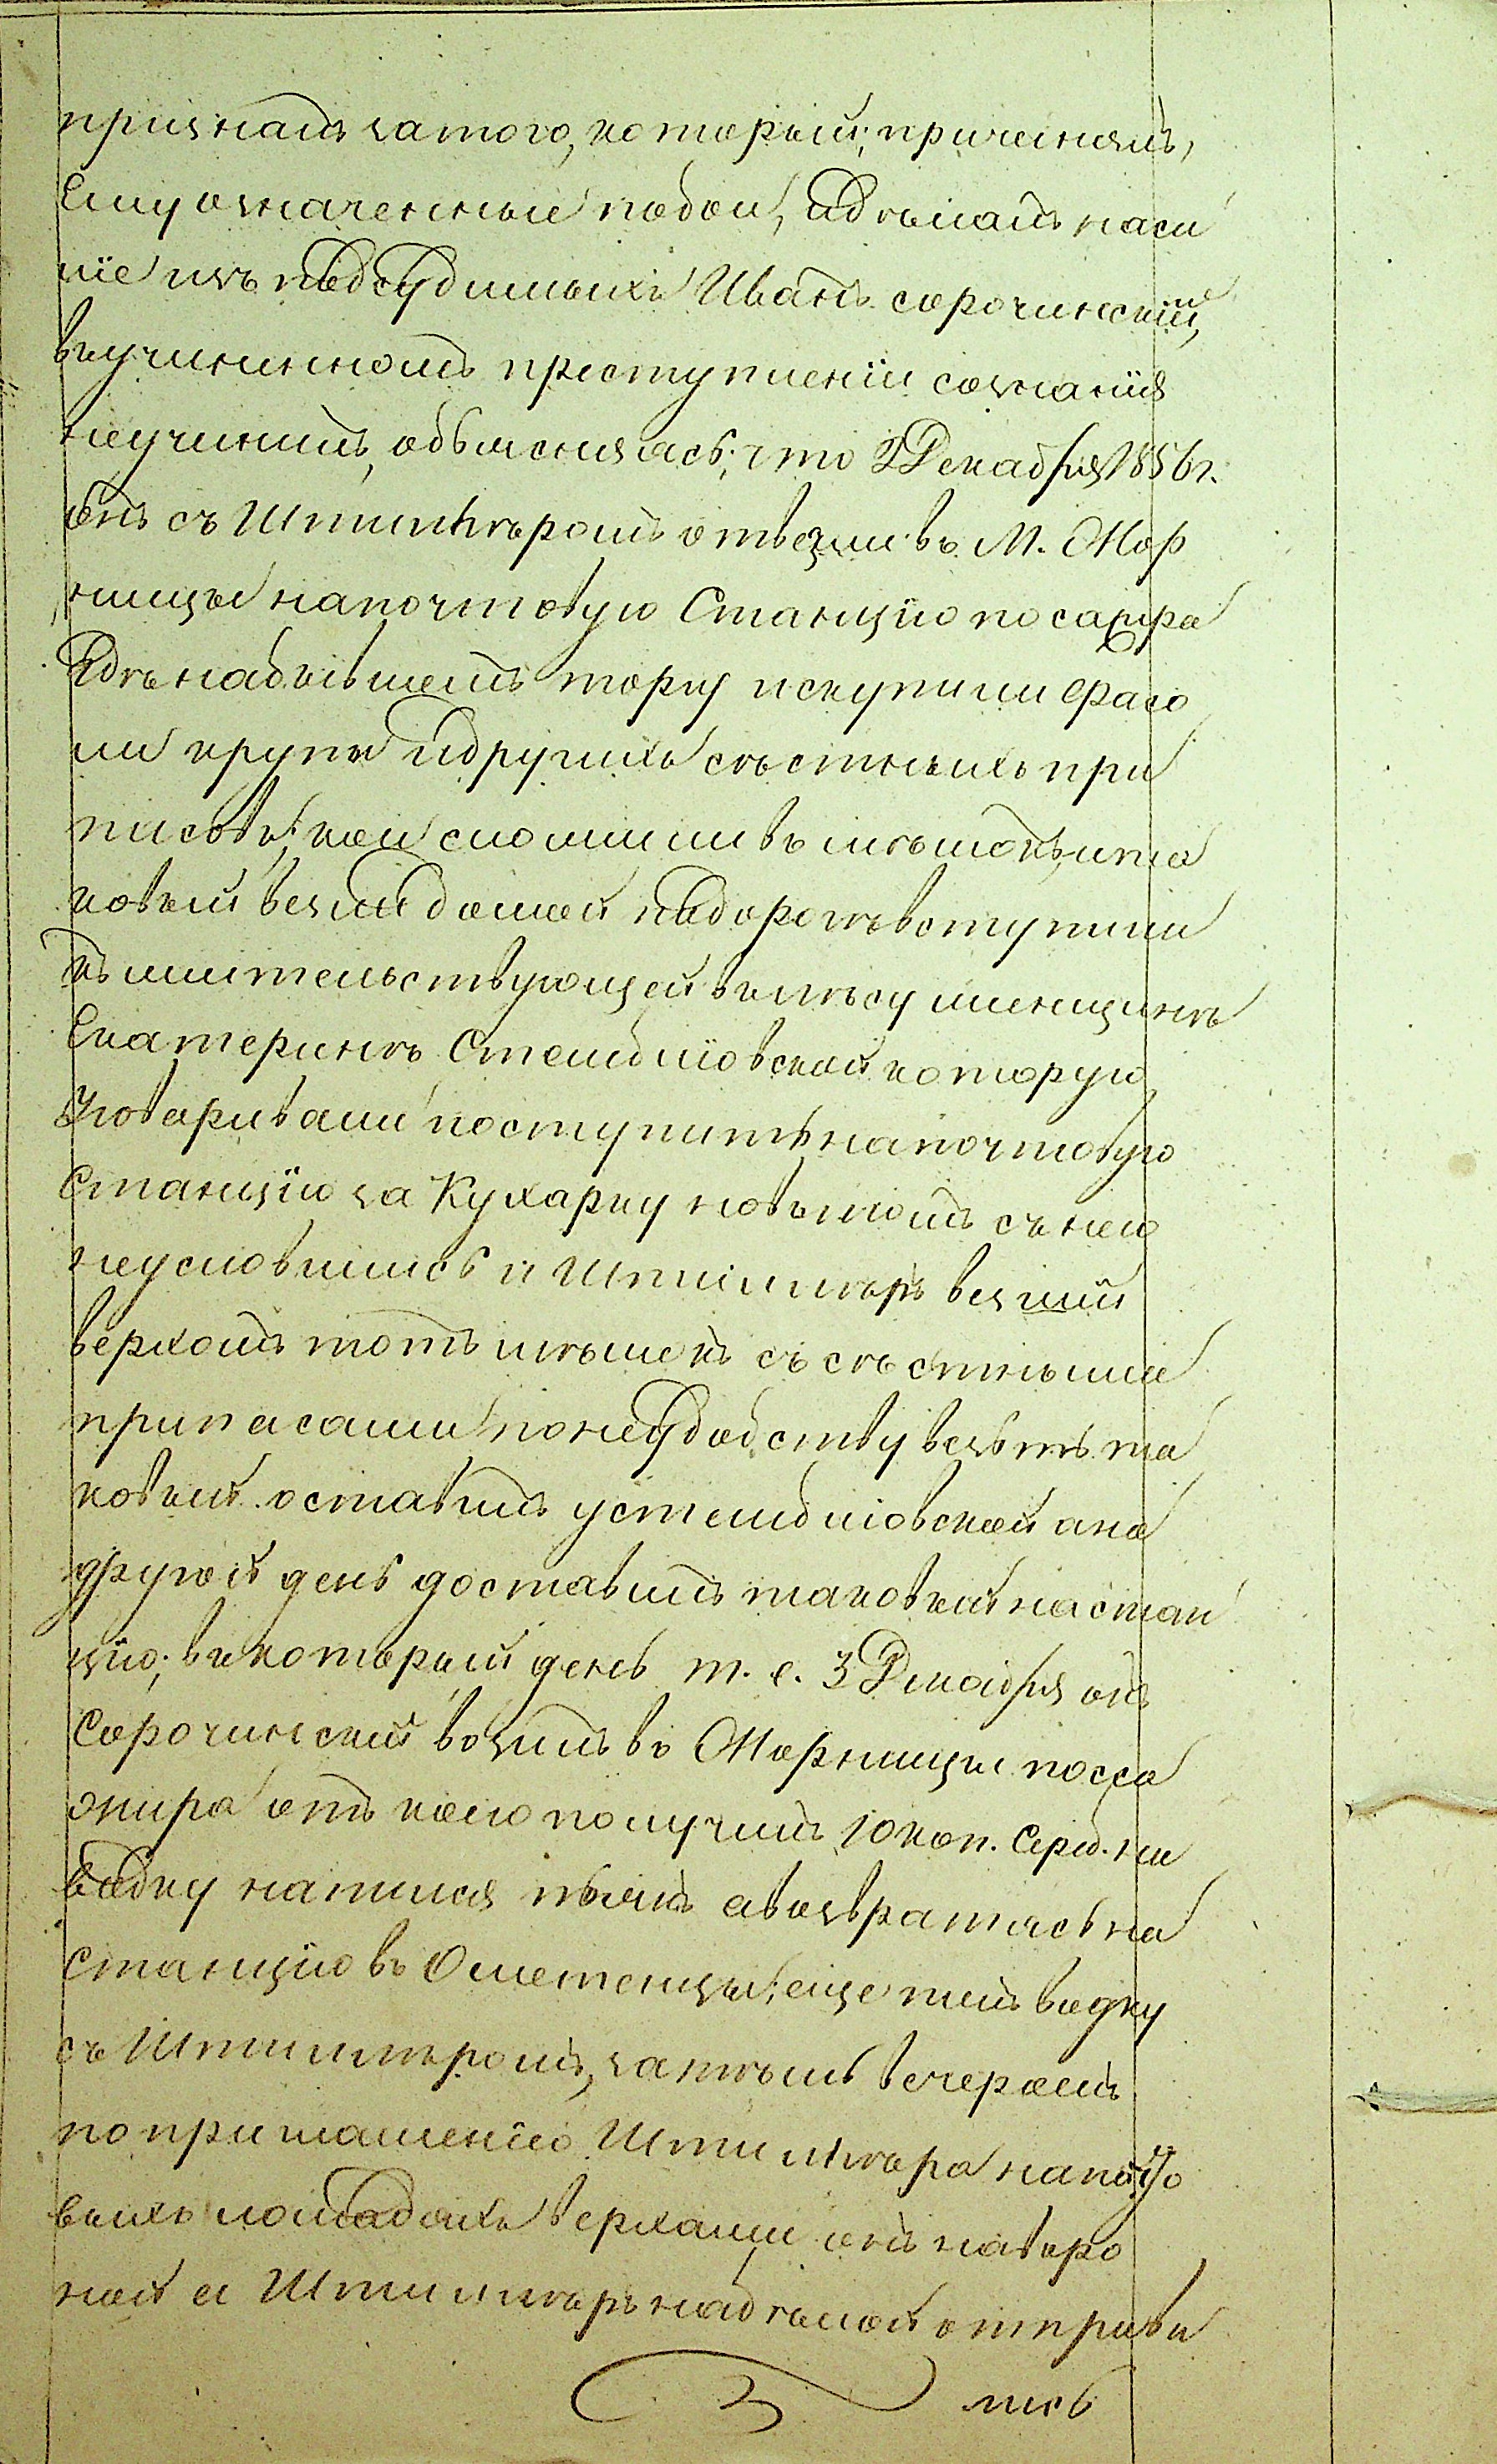 призналъ за того, который, причинялъ,
ему означенные побои, и дѣлалъ наси
ліе изъ подсудимыхъ Иванъ Сорочинскій,
въ учиненномъ преступленіи сознанія
неучинилъ, объяснялсь; что 2 Декабря 1856 г.
онъ съ Штиллѣромъ отвезли въ М. Жор
нищы на почтовую Станцію посажира
гдѣ на бывшемъ торгу искупили фасо
ли крупъ и другихъ съѣстныхъ при
пасовъ, кои сложили въ мѣшокъ, и та
ковый везли домой по дорогѣ вступили
къ жительствующей въ лѣсу женщинѣ
Екатеринѣ Стембліовской которую
уговаривали поступить на почтовую
Станцію за Кухарку но въ томъ съ нею
неусловились и Штиллѣръ везшій
верхомъ тотъ мѣшокъ съ съѣстными
припасами по неудобству везть та
ковый оставилъ у Стембліовской а на
другой день доставилъ таковый на стан
цію; въ который день т. е. 3 Декабря онъ
Сорочинскій возилъ въ Жорнищы посса
жира отъ коего получилъ 10 коп. сереб. на
водку напился пьянъ а возвратясь на
станцію въ Ометенцы, еще пилъ водку
съ Штиллѣромъ, за тѣмъ вечеромъ
по приглашенію Штиллѣра на почто
выхъ лошадяхъ верхами онъ на воро
ной а Штиллѣръ на бѣлой отправи
лись